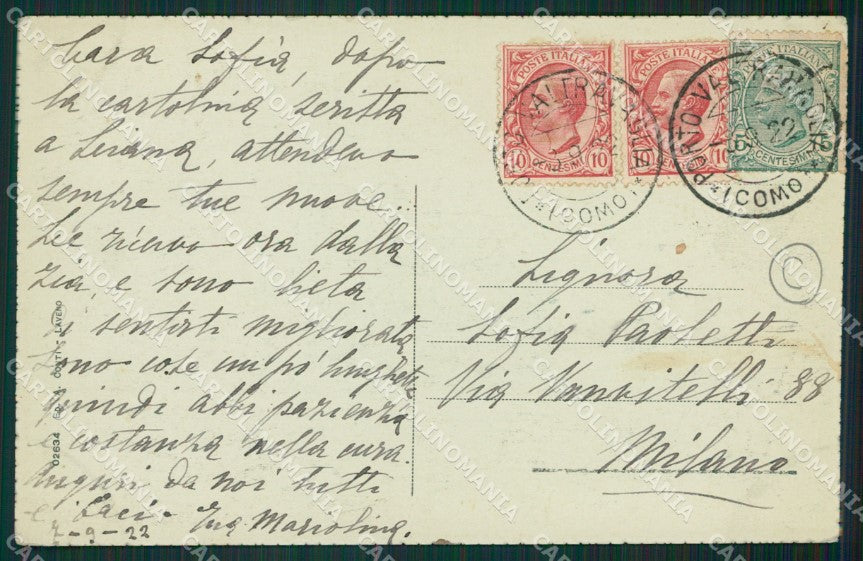 Cara Sofia, dopo
la cartolina scritta
a Liciana, attendevo
sempre tue nuove.
Le ricevo ora dalla
zia, e sono lieta
di sentirti migliorata
Sono cose un po' lunghette
quindi abbi pazienza
e costanza nella cura.
Auguri da noi tutti
e baci - Tua Mariolina.
7-9-22
02634 LAVENO
POSTE ITALIANE
10 CENTESIMI 10
POSTE ITALIANE
10 CENTESIMI 10
POSTE ITALIANE
5 CENTESIMI 5
PORTO VALTRAVAGLIA
(COMO)
PORTO VALTRAVAGLIA
(COMO)
C
Signora
Sofia Paoletti
Via Vanvitelli 88
Milano
CARTOLINOMANIA